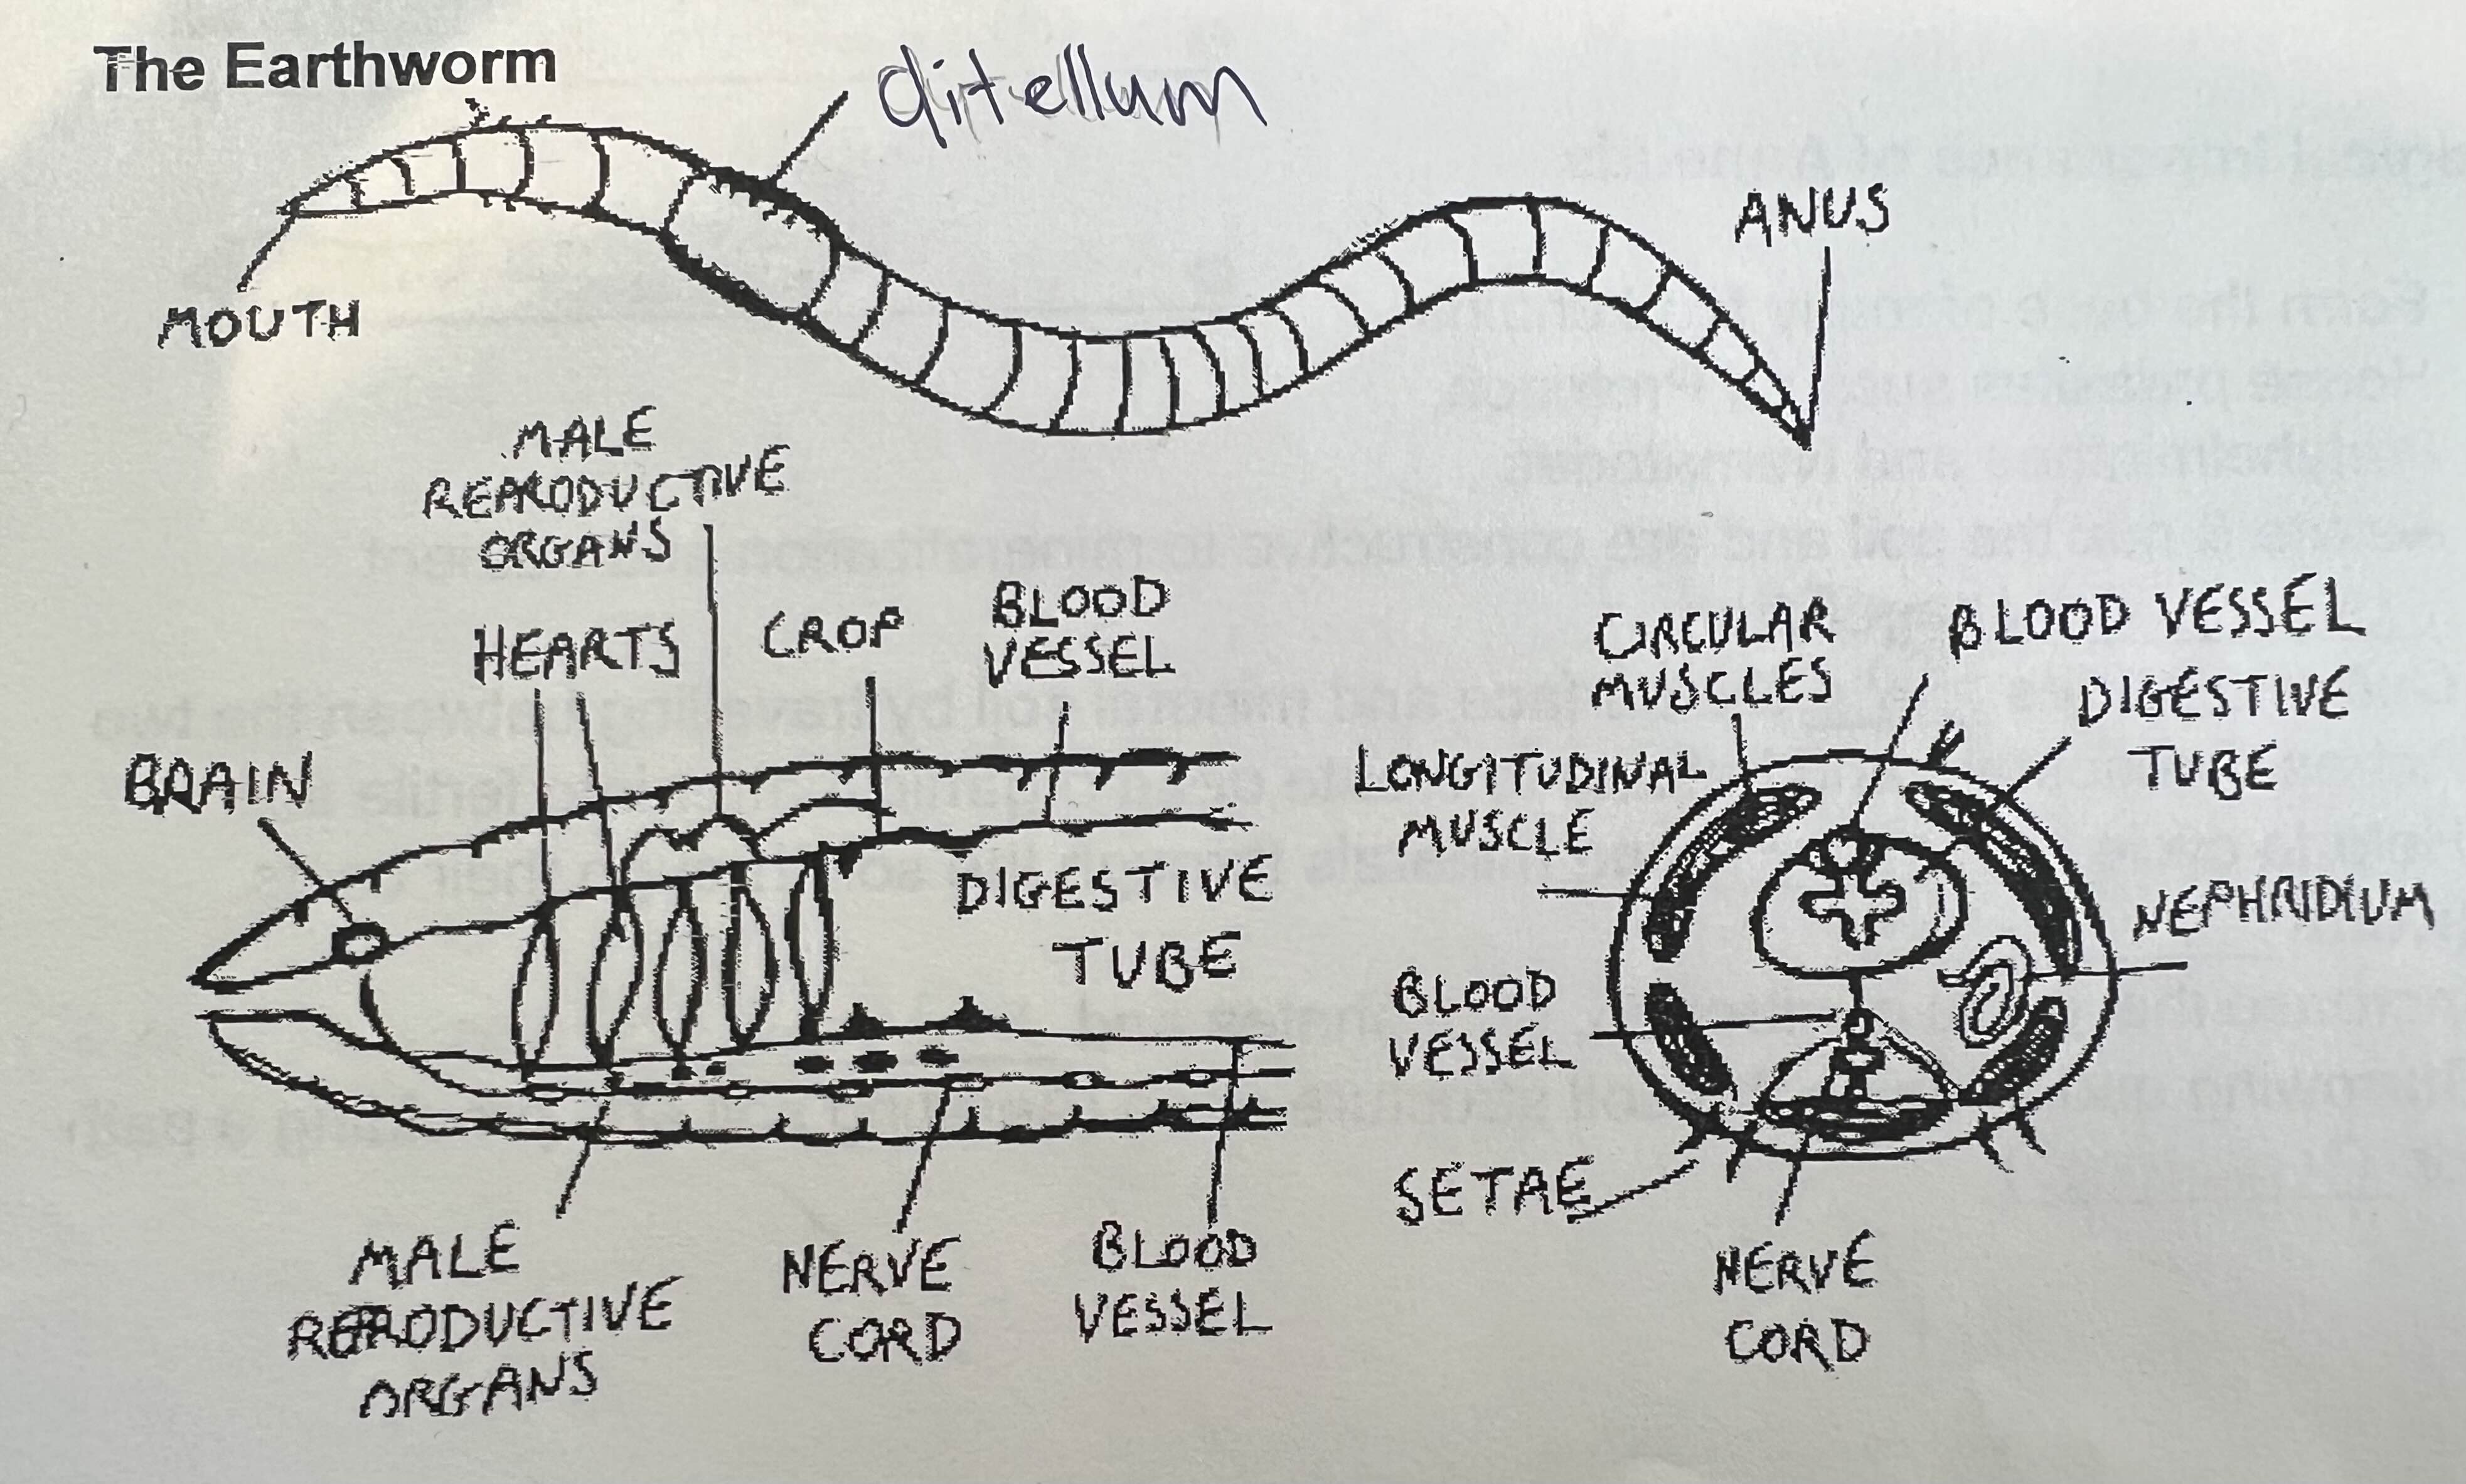 The Earthworm
clitellum
MOUTH
ANUS
MALE
REPRODUCTIVE
ORGANS
HEARTS
CROP
BLOOD
VESSEL
BRAIN
DIGESTIVE
TUBE
MALE
REPRODUCTIVE
ORGANS
NERVE
CORD
BLOOD
VESSEL
CIRCULAR
MUSCLES
BLOOD VESSEL
DIGESTIVE
TUBE
LONGITUDINAL
MUSCLE
NEPHRIDIUM
BLOOD
VESSEL
SETAE
NERVE
CORD